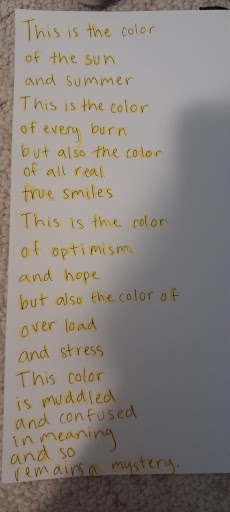 This is the color
of the sun
and summer
This is the color
of every burn
but also the color
of all real
true smiles
This is the color
of optimism
and hope
but also the color of
over load
and stress
This color
is muddled
and confused
in meaning
and so
remains a mystery.